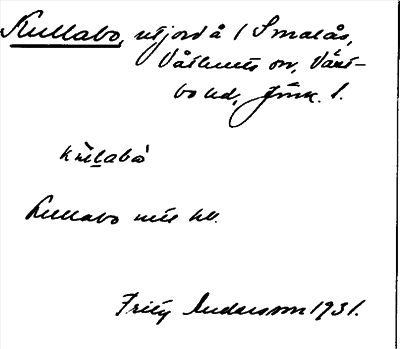 Kullabo, utjord å 1 Smalås,
Våthults sn, Väst-
bo hd, Jönk. l.
Kullabo mtl bl.
Fritz Andersson 1931.